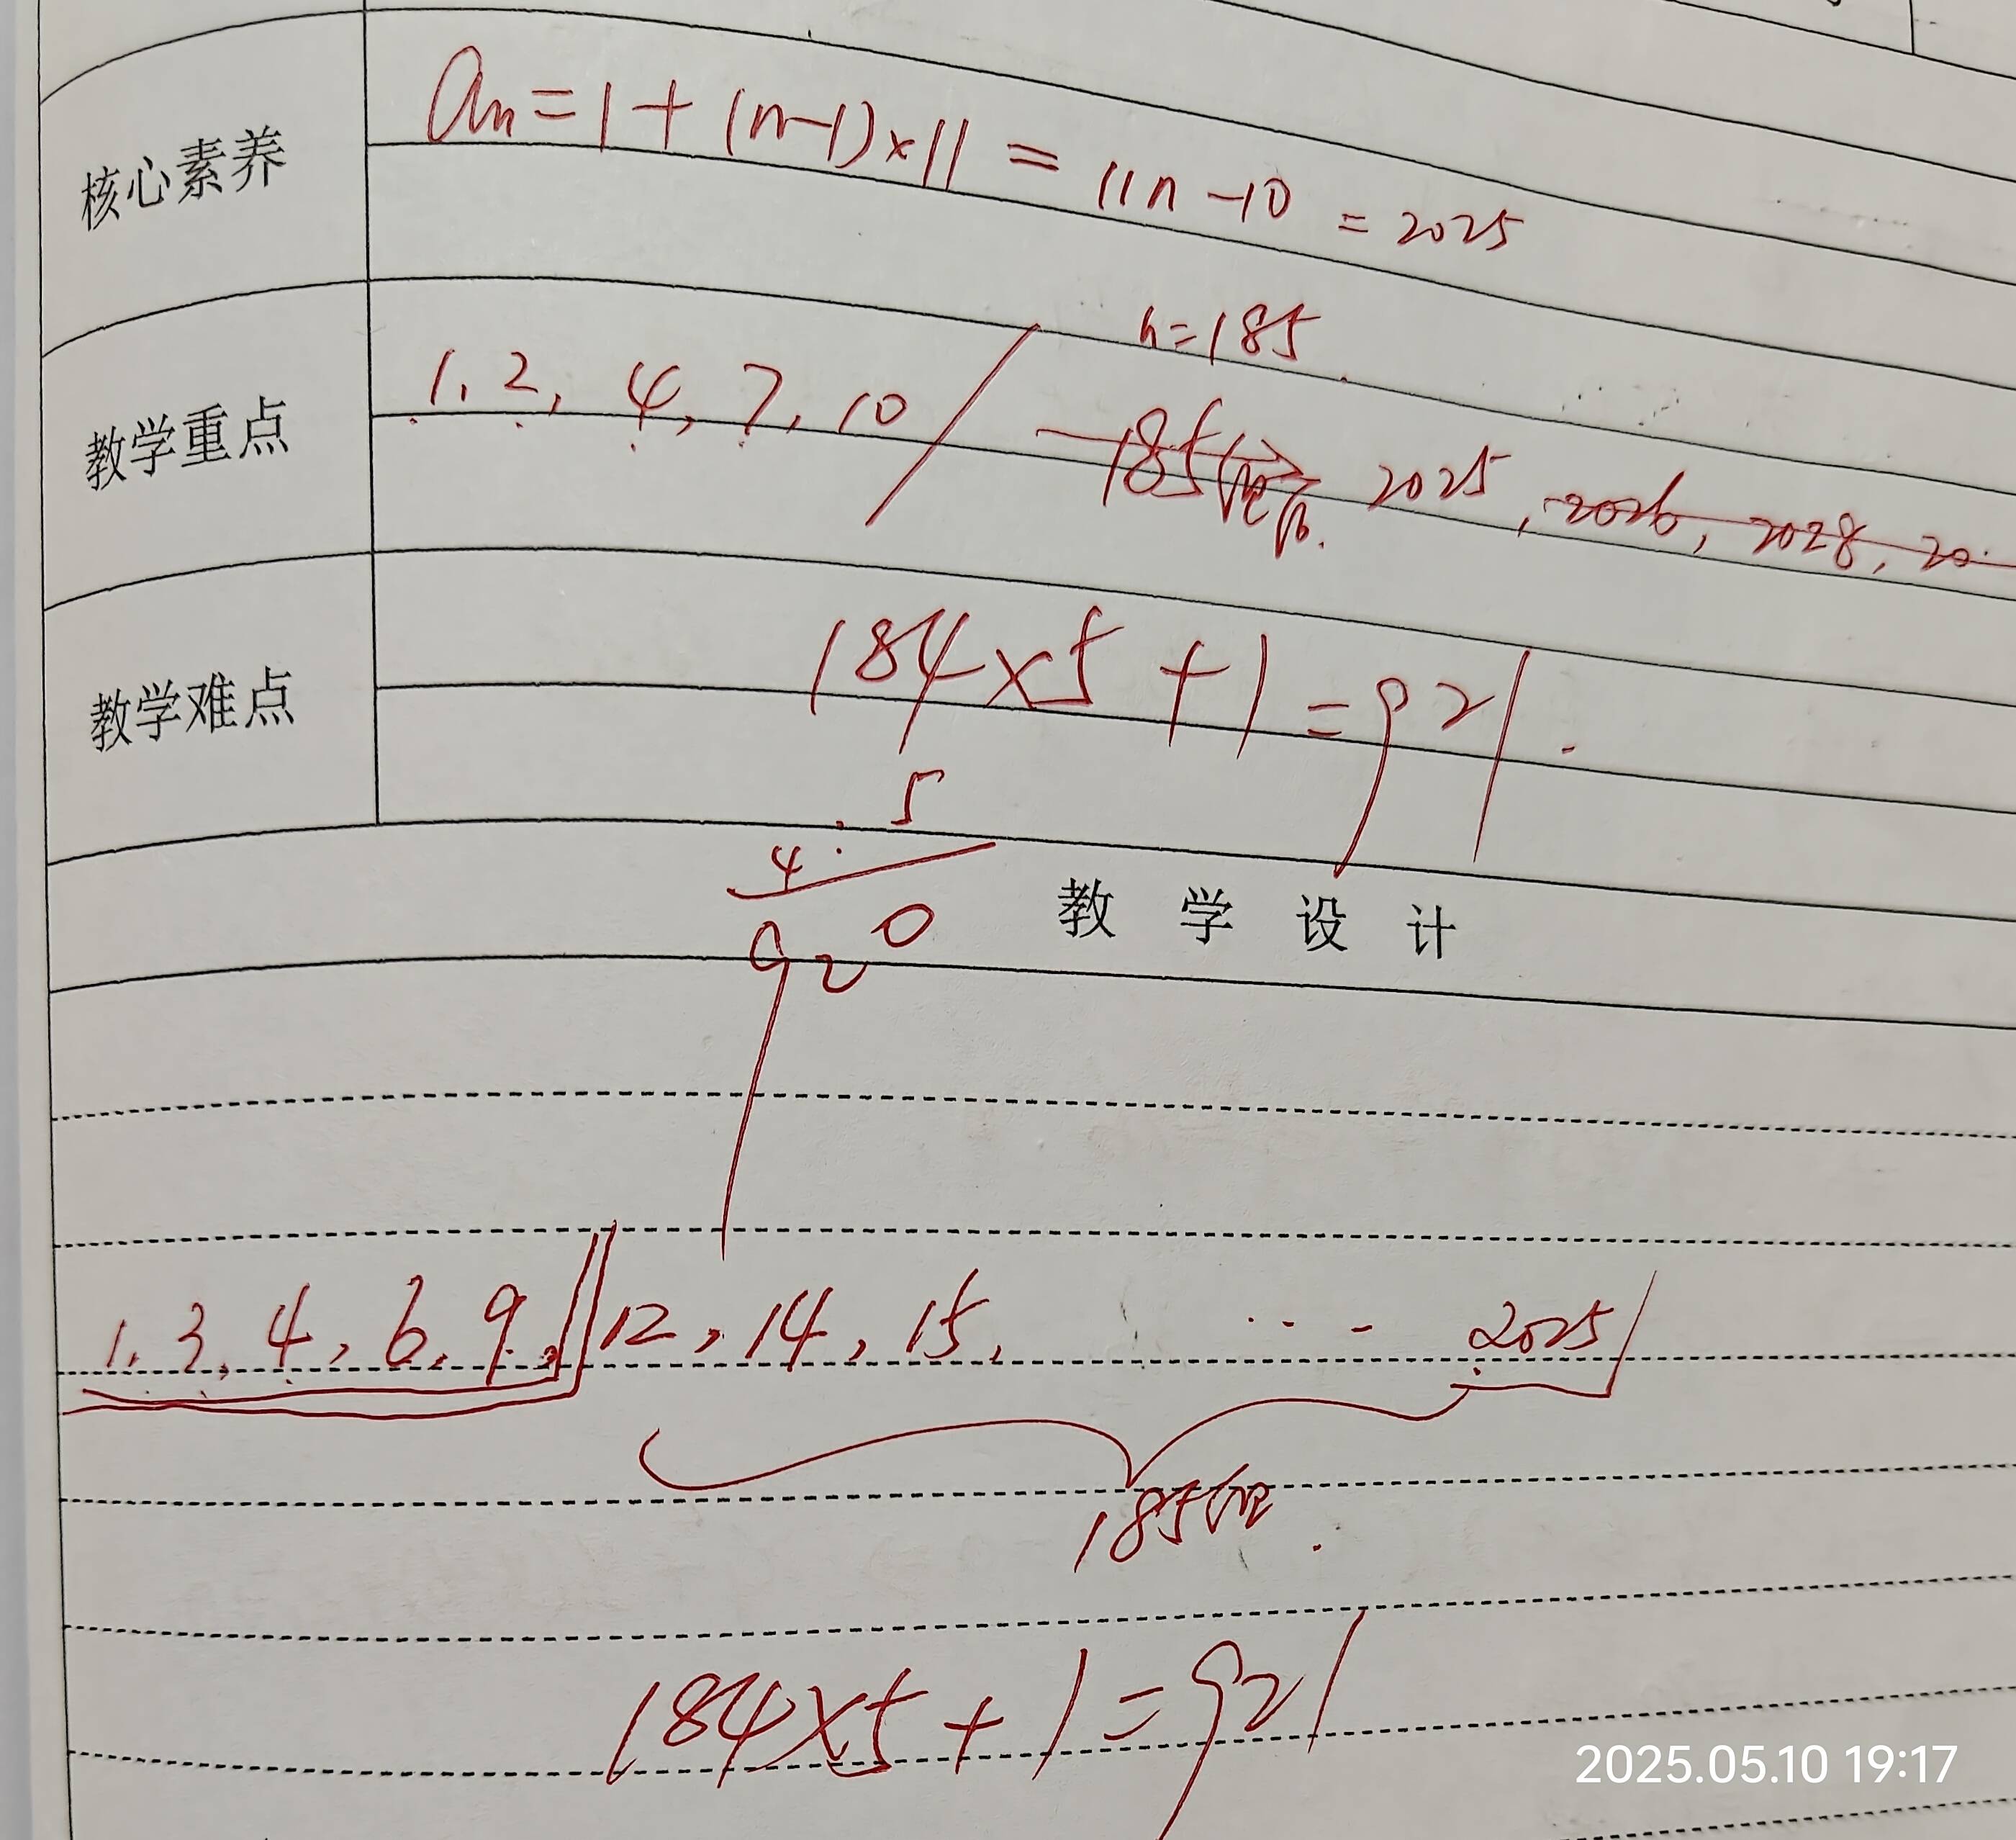 核心素养
an=1+(n-1)×11=11n-10=2025
n=185
教学重点
1,2,4,7,10
185组 2025,2026,2028,20
教学难点
184×5+1=921.
5
4
920
教学设计
1,3,4,6,9, 12,14,15, ... 2025
185组.
184×5+1=921
2025.05.10 19:17